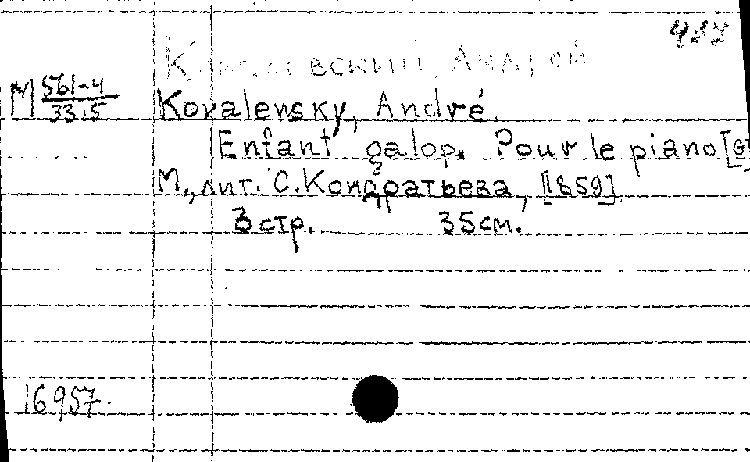 М 561-4
33.5
Kovalevsky, André.
Enfant galop. Pour le piano [G]
М., лит. С. Кондратьева, [1859]
3 стр. 35 см.
16957.